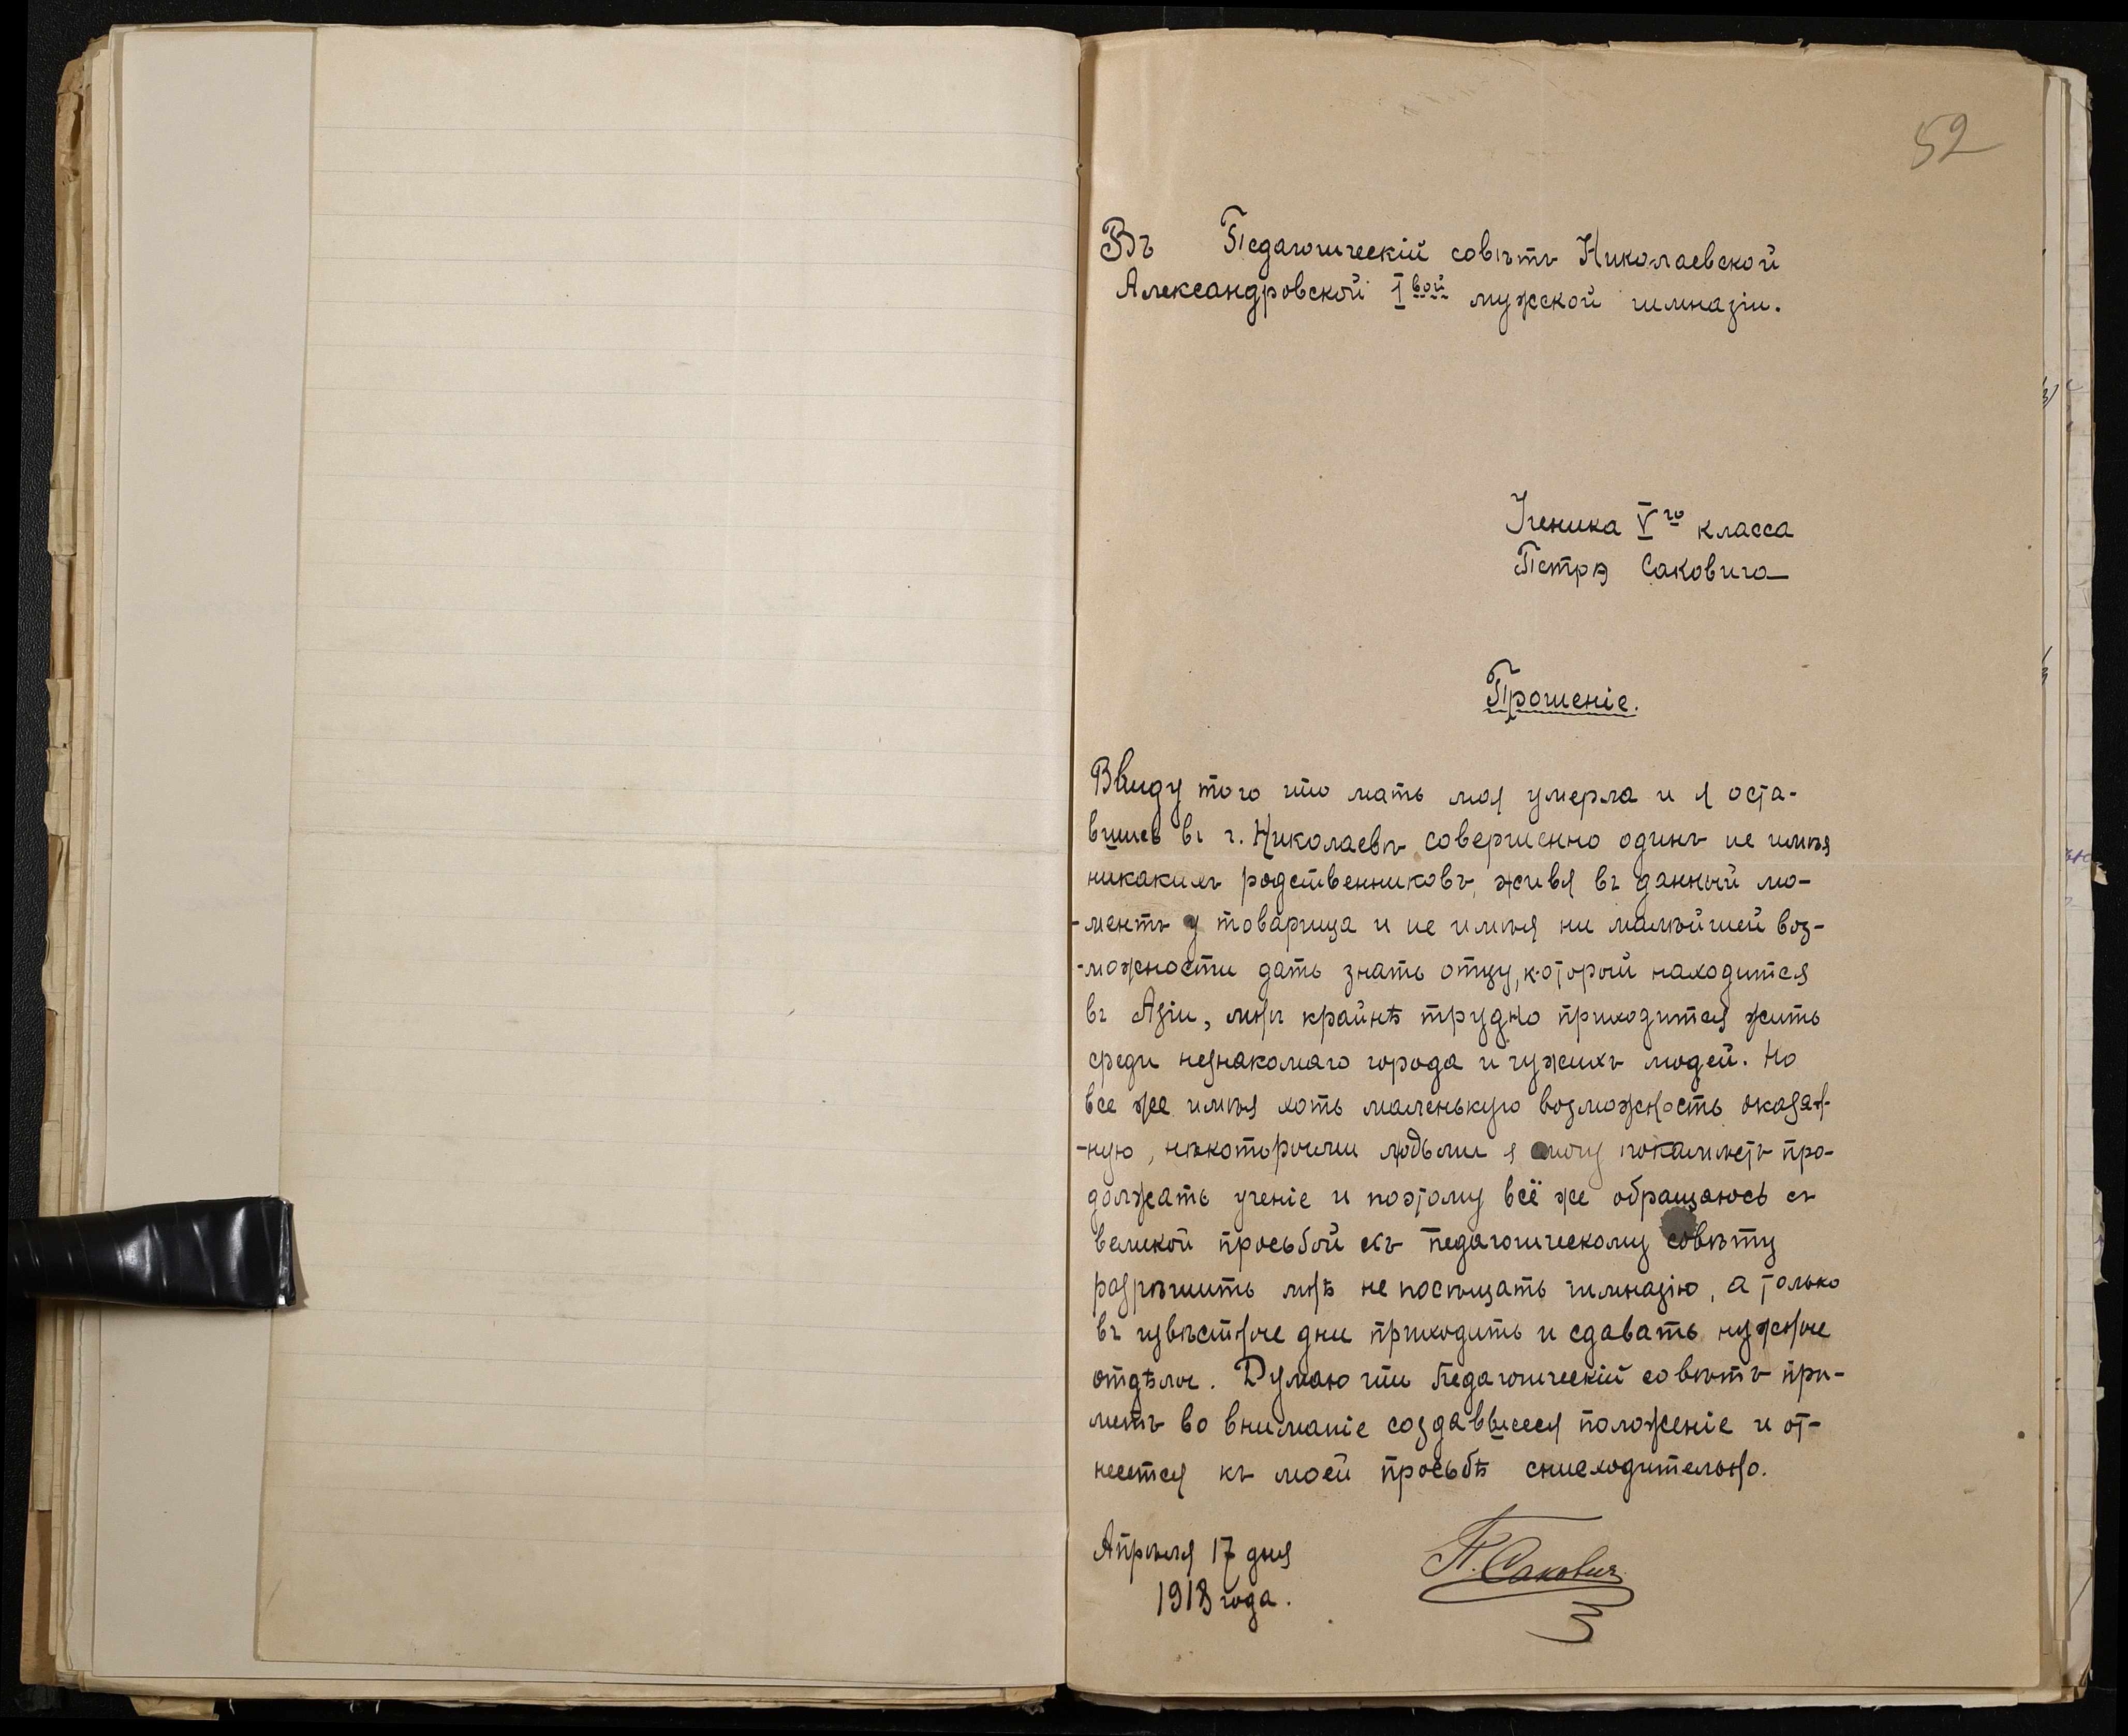 52
Въ Педагогическій совѣтъ Николаевской
Александровской Iвой мужской гимназіи.
Ученика Vго класса
Петра Саковича
Прошеніе.
Ввиду того что мать моя умерла и я оста-
вшись въ г. Николаевѣ совершенно одинъ не имѣя
никакихъ родственниковъ, живя въ данный мо-
-ментъ у товарища и не имѣя ни малѣйшей воз-
-можности дать знать отцу, который находится
въ Азіи, мнѣ крайнѣ трудно приходится жить
среди незнакомаго города и чужихъ людей. Но
все же имѣя хоть маленькую возможность оказан-
-ную, нѣкоторыми людьми я могу покамѣстъ про-
должать ученіе и поэтому всё же обращаюсь съ
великой просьбой къ педагогическому совѣту
разрѣшить мнѣ не посѣщать гимназію, а только
въ извѣстные дни приходить и сдавать нужные
отдѣлы. Думаю что Педагогическій совѣтъ при-
метъ во вниманіе создавшееся положеніе и от-
несется къ моей просьбѣ снисходительно.
Апрѣля 17 дня
1918 года.
П. Сакович